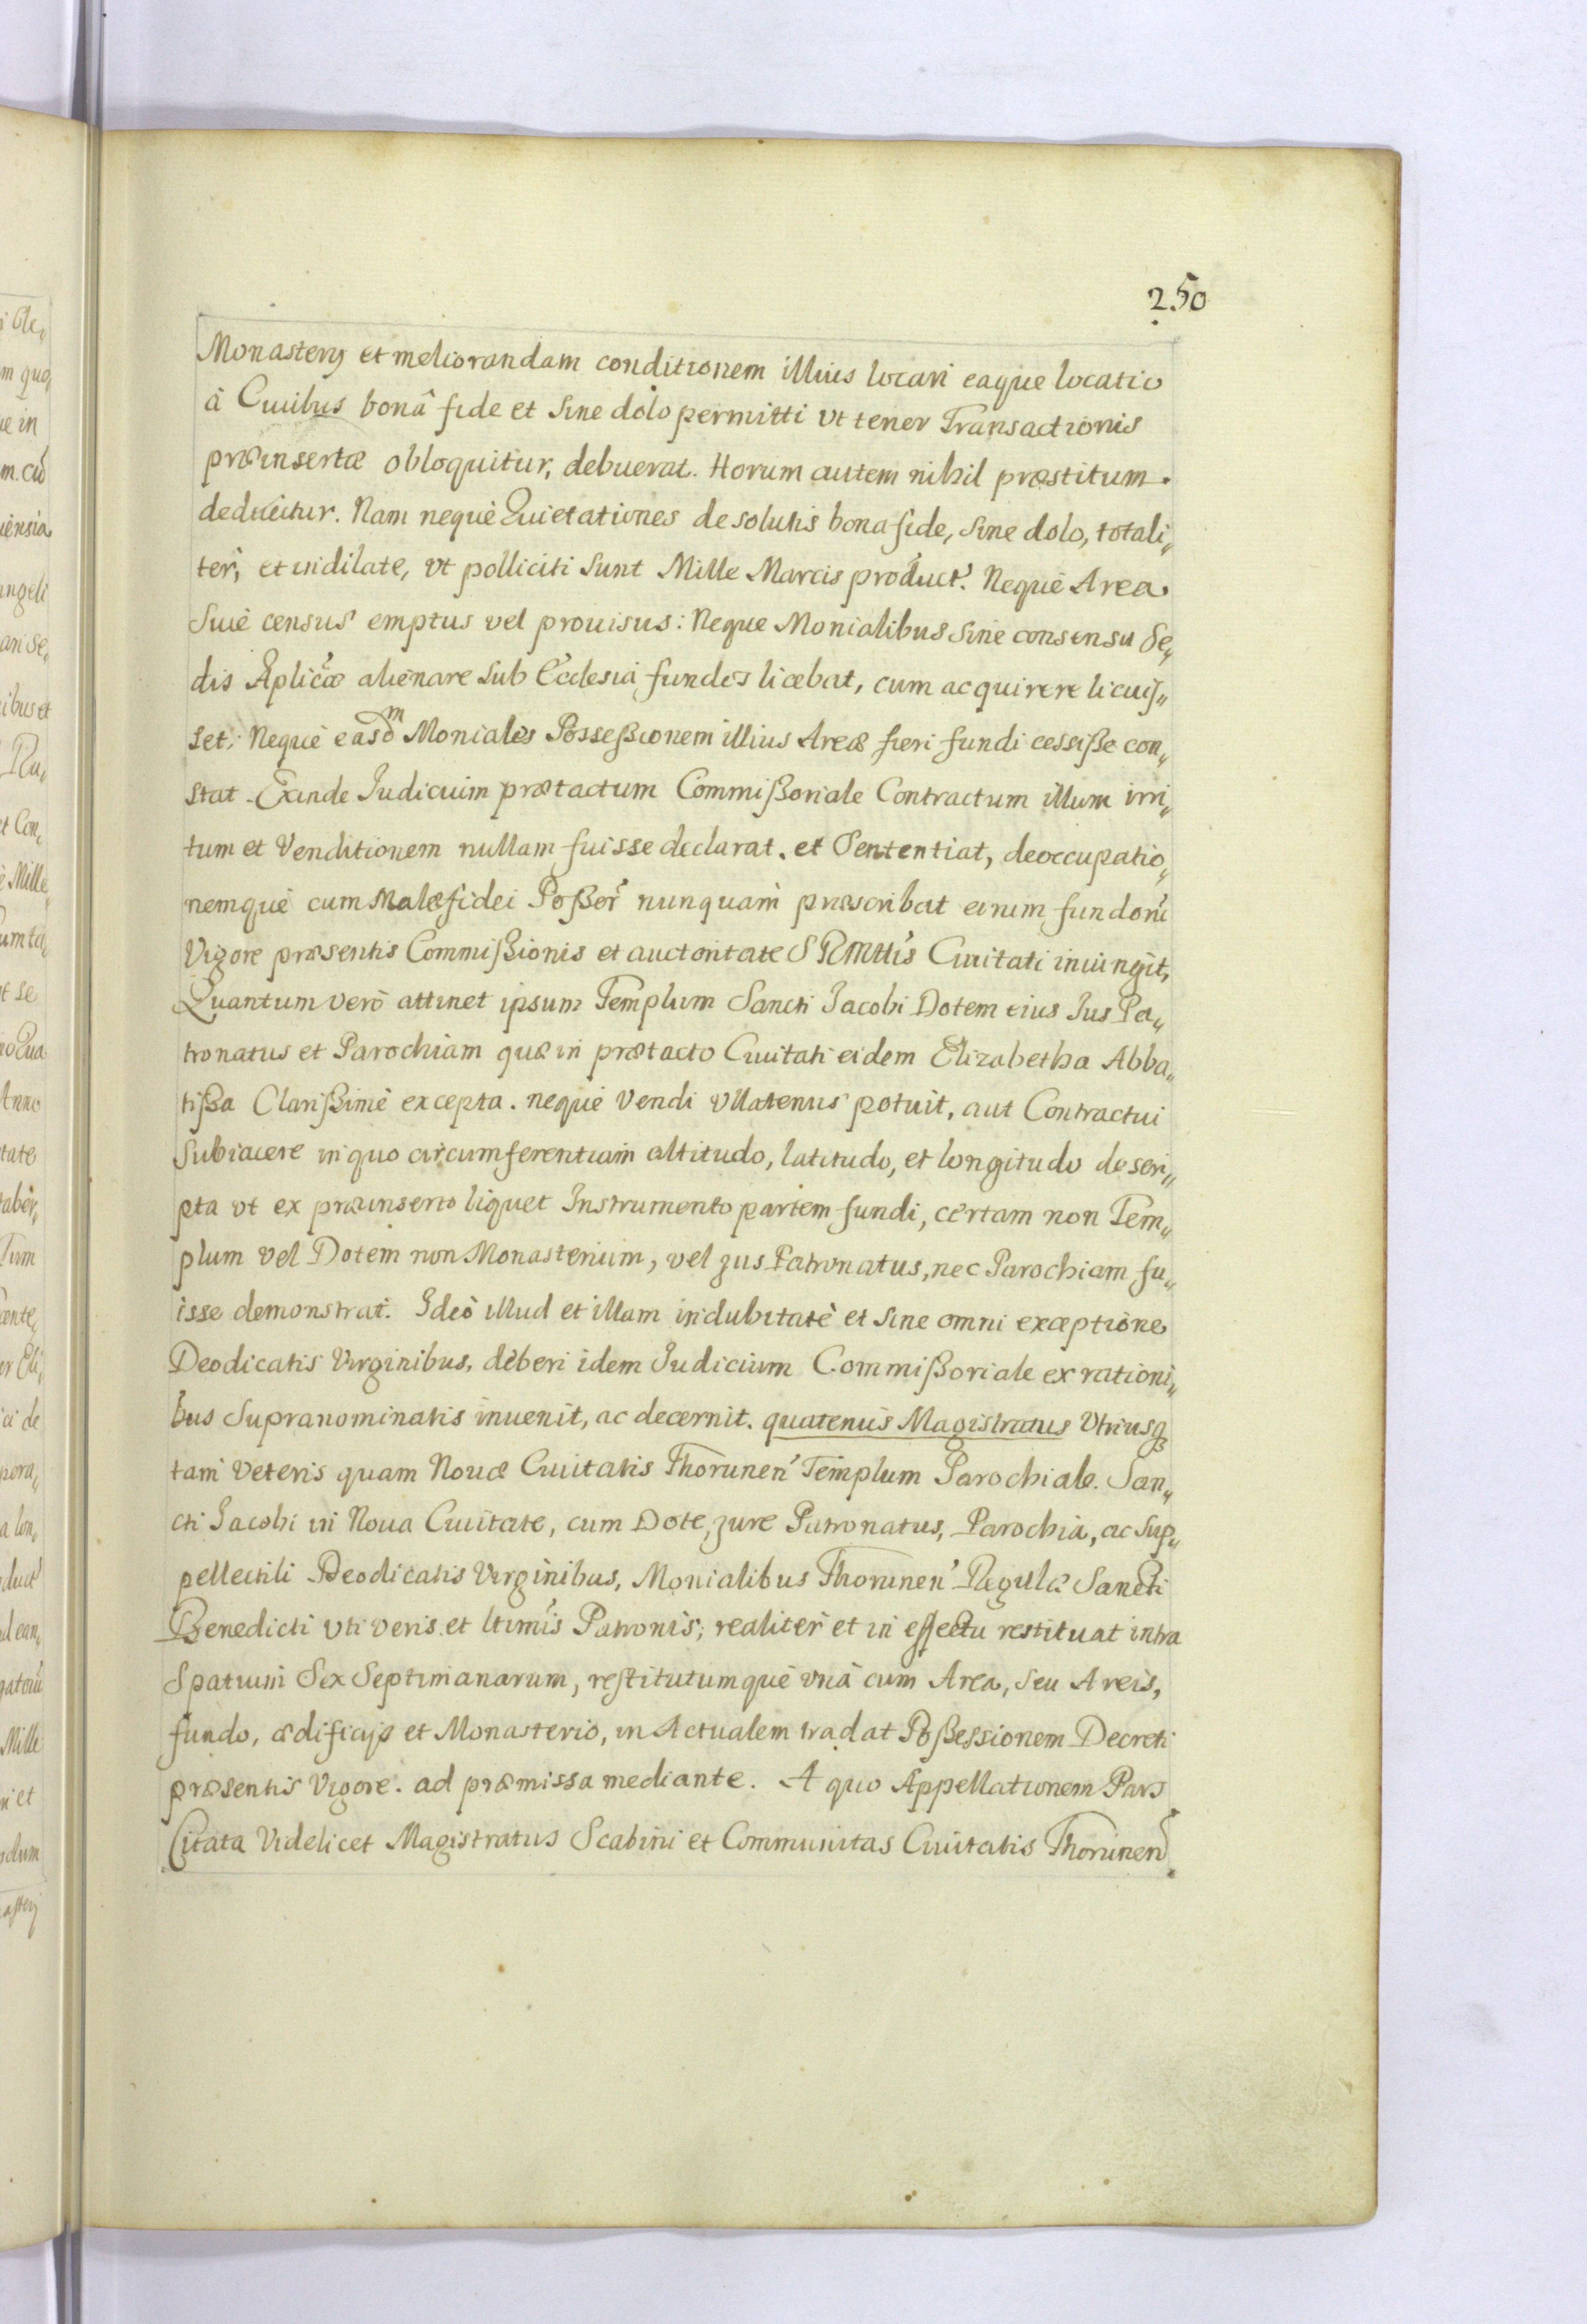 250
Monasterÿ et meliorandam conditionem illius locari eaque locatio
à Ciuibus bonâ fide et sine dolo permitti vt tenor Transactionis
præinsertæ obloquitur, debuerat. Horum autem nihil præstitum.
deducitur. Nam neque Quietationes de solutis bona fide, sine dolo, totali„
ter, et indilate, vt polliciti sunt Mille Marcis product'. Neque Area
siue census emptus vel prouisus: Neque Monialibus sine consensu Se„
dis Aplicæ alienare sub Ecclesia fundos licebat, cum acquirere licuis„
set. Neque easdm Moniales Possessionem illius Areæ fieri fundi cessiße con„
stat. Exinde Iudicium prætactum Commißoriale Contractum illum irri„
tum et Venditionem nullam fuisse declarat. et Sententiat, deoccupatio„
nemque cum Malæfidei Poßor' nunquam præscribat eorum fundorū
Vigore præsentis Commißionis et auctoritate S RMttis Ciuitati iniungit,
Quantum verò attinet ipsum Templum Sancti Jacobi Dotem eius Jus Pa„
tronatus et Parochiam quæ in prætacto Ciuitati eidem Elizabetha Abba„
tißa Clarißimè excepta. neque Vendi vllatenus potuit, aut Contractui
Subiacere in quo circumferentiam altitudo, latitudo, et longitudo descri„
pta vt ex præinserto liquet Instrumento partem fundi, certam non Tem„
plum vel Dotem non Monasterium, vel jus Patronatus, nec Parochiam fu„
isse demonstrat. Ideò illud et illam indubitatè et sine omni exceptione
Deodicatis Virginibus, deberi idem Iudicium Commißoriale ex rationi„
bus supranominatis inuenit, ac decernit. quatenus Magistratus Vtriusq
tam Veteris quam Nouæ Ciuitatis Thorunen' Templum Parochiale. San„
cti Jacobi in Noua Ciuitate, cum Dote, jure Patronatus, Parochia, ac sup„
pellectili Deodicatis Virginibus, Monialibus Thorunen' Regulæ Sancti
Benedicti vti veris et ltimis Patronis; realiter et in effectu restituat intra
Spatium Sex Septimanarum, restitutumque vnà cum Area, seu Areis,
fundo, ædificijs et Monasterio, in Actualem tradat Poßessionem Decreti
præsentis Vigore. ad præmissa mediante. A quo Appellationem Pars
Citata Videlicet Magistratus Scabini et Communitas Ciuitatis Thorunen'